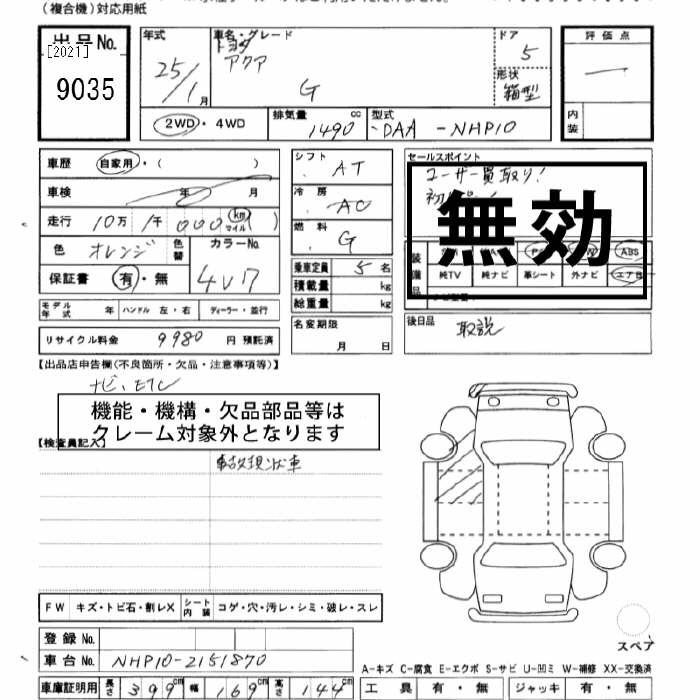 (複合機)対応用紙
出品No.
[2021]
9035
年式 25/1月
車名・グレード
トヨタ
アクア
G
ドア 5
形状 箱型
評価点
内装
2WD・4WD
排気量 1490 cc
型式 DAA-NHP10
車歴 自家用・( )
車検 年 月
走行 10万 1千 000 km マイル ( )
色 オレンジ 色替
カラーNo. 4V7
保証書 有・無
シフト AT
冷房 AC
燃料 G
乗車定員 5名
積載量 kg
総重量 kg
名変期限
月 日
セールスポイント
ユーザー買取り!
無効
装備品
ABS
純TV 純ナビ 革シート 外ナビ エアB
後日品 取説
モデル年式 年 ハンドル 左・右 ディーラー・並行
リサイクル料金 9980 円 預託済
【出品店申告欄(不良箇所・欠品・注意事項等)】
ナビ、ETC
機能・機構・欠品部品等は
クレーム対象外となります
【検査員記入】
事故現状車
FW キズ・トビ石・割レX シート内装 コゲ・穴・汚レ・シミ・破レ・スレ
スペア
登録No.
車台No. NHP10-2151870
A-キズ C-腐食 E-エクボ S-サビ U-凹ミ W-補修 XX-交換済
車庫証明用 長さ 399cm 幅 169cm 高さ 144cm
工具 有・無 ジャッキ 有・無